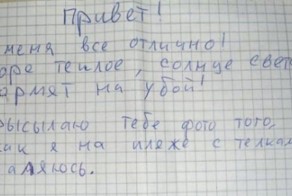 Привет!
меня все отлично!
оре теплое, солнце свет
ормят на убой!
ысылаю тебе фото того,
как я на пляже с телкам
аляюсь.